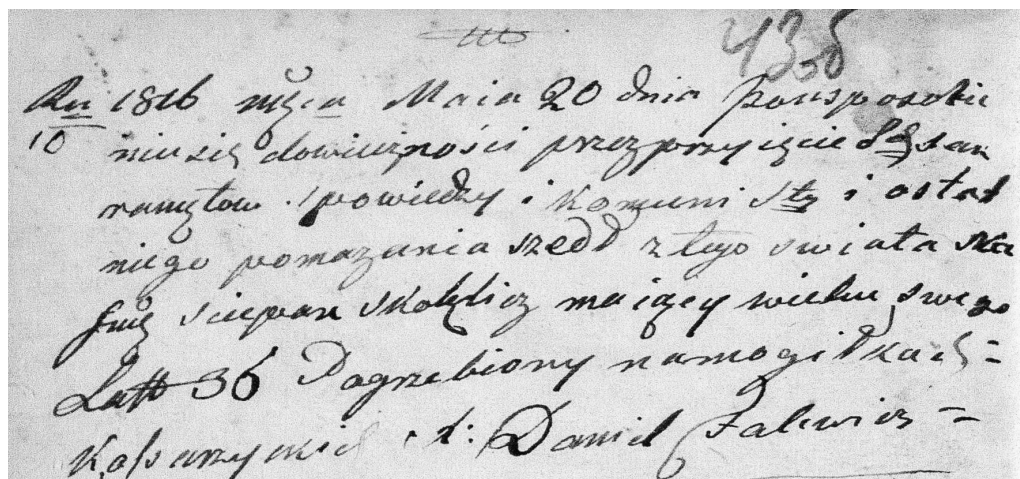 438
Ru 1816 mca Maia 20 dnia pousposobie
10 niu się dowieczności przez przyięcie SS sak
ramętow spowiedzy i Komuni Stey i ostat
niego pomazania szedł z tego swiata
Sciepan maiący wieku swego
Latt 36 Pogrzebiony namogiłkach =
Daniel Falewicz =